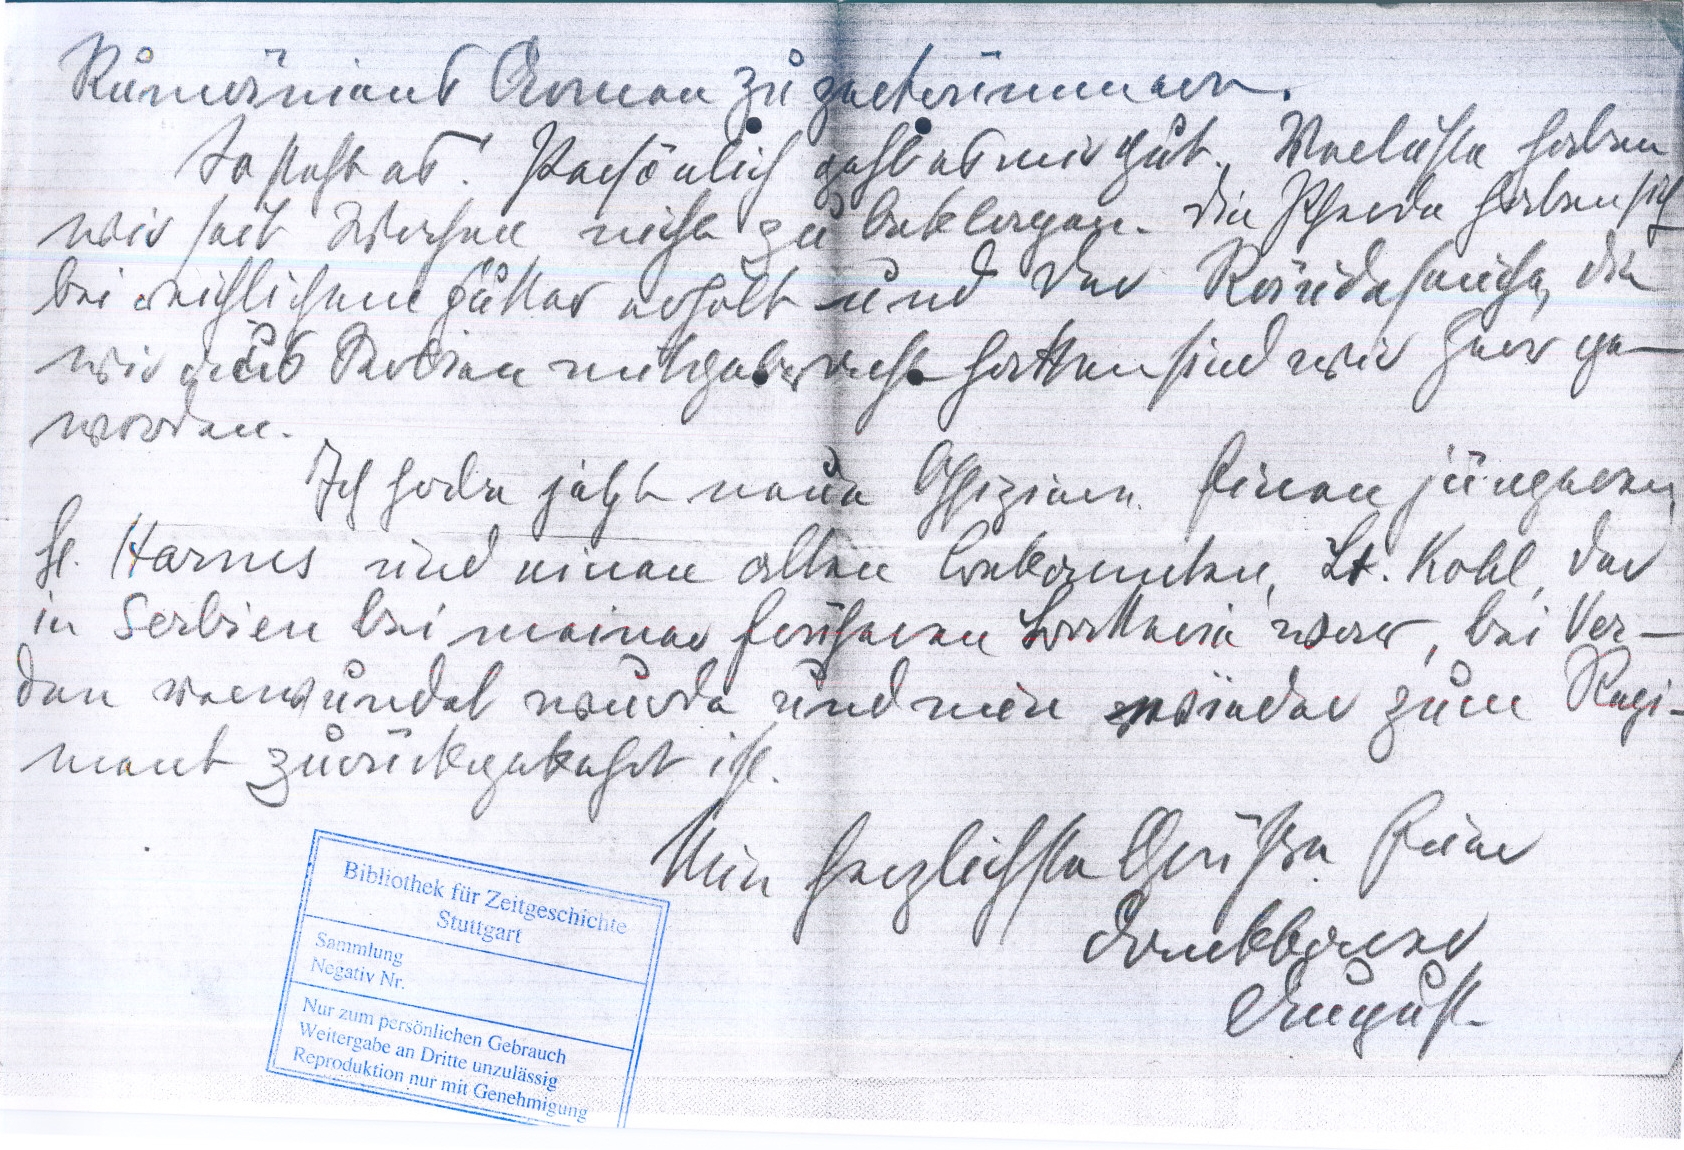 Rumäniens Armee zu zertrümmern.
So steht es! Persönlich geht es mir gut. Verluste haben
wir seit Wochen nicht zu beklagen. Die Pferde haben sich
bei reichlichem Futter erholt und der Räudeseuche, die
wir aus Serbien mitgebracht hatten sind wir Herr ge-
worden.
Ich habe jetzt neue Offiziere. Einen jüngeren,
Harms und einen alten Bekannten, Lt. Kohl, der
in Serbien bei meiner früheren Batterie war, bei Ver-
dun verwundet wurde und nun wieder zum Regi-
ment zurückgekehrt ist.
Nun herzlichste Grüße. Euer
dankbarer
August.
Bibliothek für Zeitgeschichte
Stuttgart
Sammlung
Negativ Nr.
Nur zum persönlichen Gebrauch
Weitergabe an Dritte unzulässig
Reproduktion nur mit Genehmigung